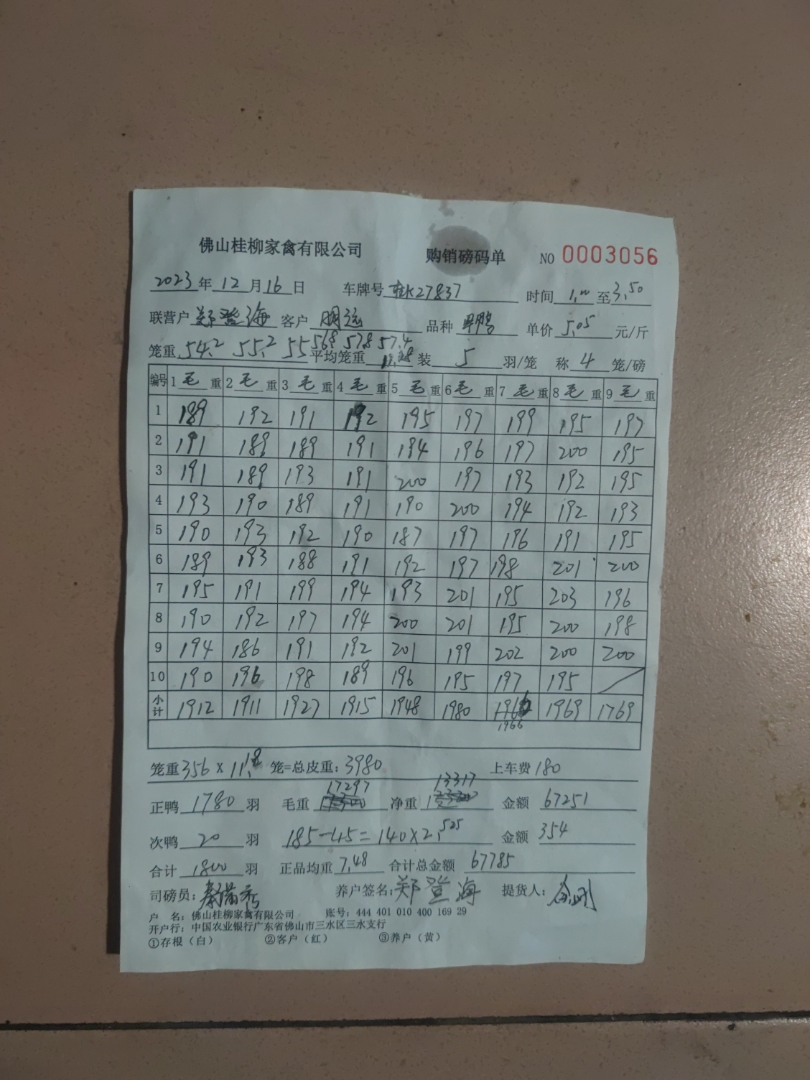 佛山桂柳家禽有限公司 购销磅码单 NO 0003056
2023年12月16日 车牌号 K27837 时间 1.00 至 3.50
联营户 郑登海 客户 明远 品种 单价 5.05 元/斤
笼重 54.2 55.2 55 56.8 57.8 57.4 平均笼重 装 5 羽/笼 称 4 笼/磅
编号 1 毛 重 2 毛 重 3 毛 重 4 毛 重 5 毛 重 6 毛 重 7 毛 重 8 毛 重 9 毛 重
1 189 192 191 192 195 197 199 195 197
2 191 189 189 191 194 196 197 200 195
3 191 189 193 191 200 197 193 192 195
4 193 190 189 191 190 200 194 192 193
5 190 193 192 190 187 197 196 191 195
6 189 193 188 191 192 197 198 201 200
7 195 191 199 194 193 201 195 203 196
8 190 192 197 194 200 201 195 200 198
9 194 186 191 192 201 199 202 200 200
10 190 196 198 189 196 195 197 195
小计 1912 1911 1927 1915 1948 1980 1969 1769
1966
笼重 356 × 11.18 笼=总皮重: 3980 上车费 180
17297 13317
正鸭 1780 羽 毛重 净重 金额 67251
次鸭 20 羽 185-45=140×2.525 金额 354
合计 1800 羽 正品均重 7.48 合计总金额 67785
司磅员: 养户签名: 郑登海 提货人:
户 名: 佛山桂柳家禽有限公司 账号: 444 401 010 400 169 29
开户行: 中国农业银行广东省佛山市三水区三水支行
①存根(白) ②客户(红) ③养户(黄)